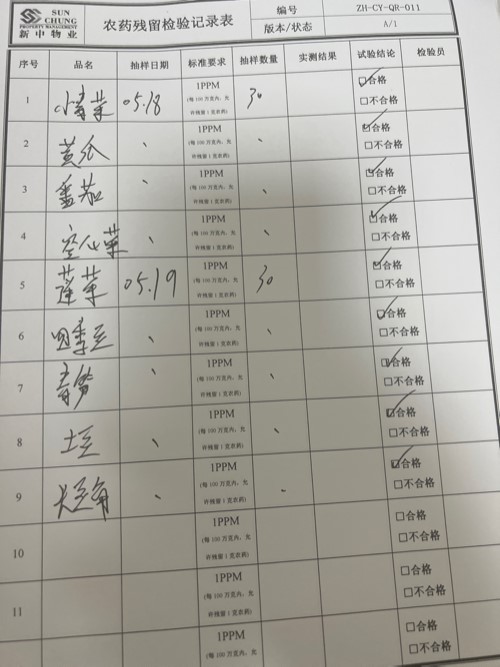 SUN CHUNG
PROPERTY MANAGEMENT
新中物业
农药残留检验记录表
编号 ZH-CY-QR-011
版本/状态 A/1
序号 品名 抽样日期 标准要求 抽样数量 实测结果 试验结论 检验员
1 小青菜 05.18 1PPM 30 ☑合格
(每100万克内，允许残留1克农药) □不合格
2 黄瓜 、 1PPM 、 ☑合格
(每100万克内，允许残留1克农药) □不合格
3 番茄 、 1PPM 、 ☑合格
(每100万克内，允许残留1克农药) □不合格
4 空心菜 、 1PPM 、 ☑合格
(每100万克内，允许残留1克农药) □不合格
5 菠菜 05.19 1PPM 30 ☑合格
(每100万克内，允许残留1克农药) □不合格
6 四季豆 、 1PPM 、 ☑合格
(每100万克内，允许残留1克农药) □不合格
7 1PPM 、 ☑合格
(每100万克内，允许残留1克农药) □不合格
8 土豆 、 1PPM 、 ☑合格
(每100万克内，允许残留1克农药) □不合格
9 长豆角 、 1PPM 、 ☑合格
(每100万克内，允许残留1克农药) □不合格
10 1PPM □合格
(每100万克内，允许残留1克农药) □不合格
11 1PPM □合格
(每100万克内，允许残留1克农药) □不合格
1PPM □合格
(每100万克内，允 □不合格